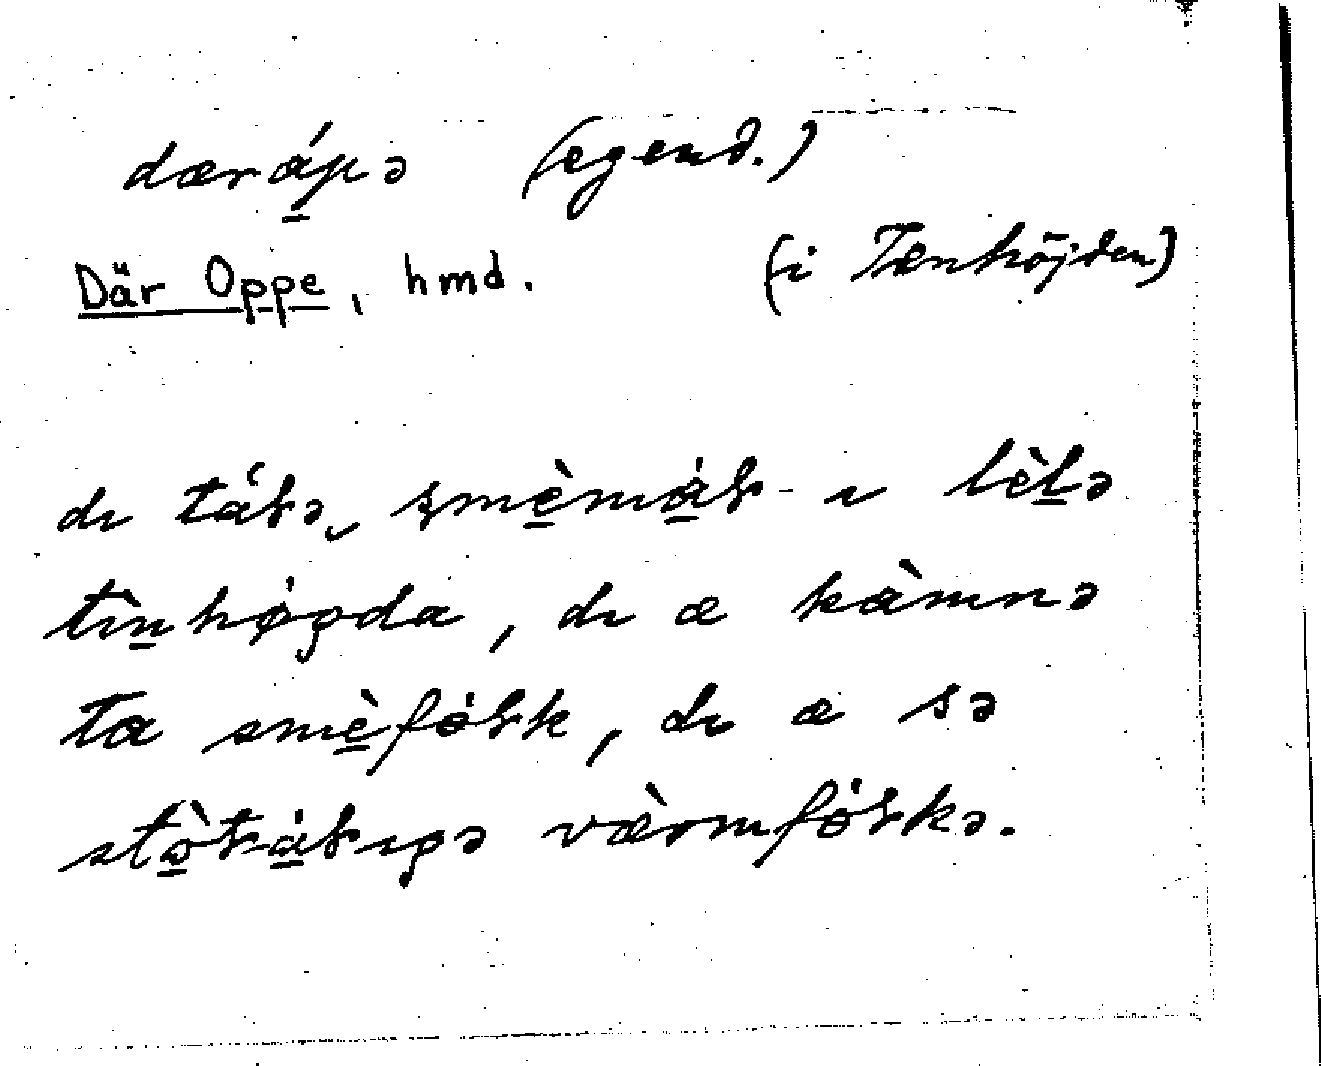 dærápə (egend.)
Där Oppe, hmd. (i Tænhöjden)
dı tálə, smèmál - ı lèlə
tìnhøgda, dı æ kàmnə
ta smèfólk, dı æ sə
stòtáligə værmfólkə.